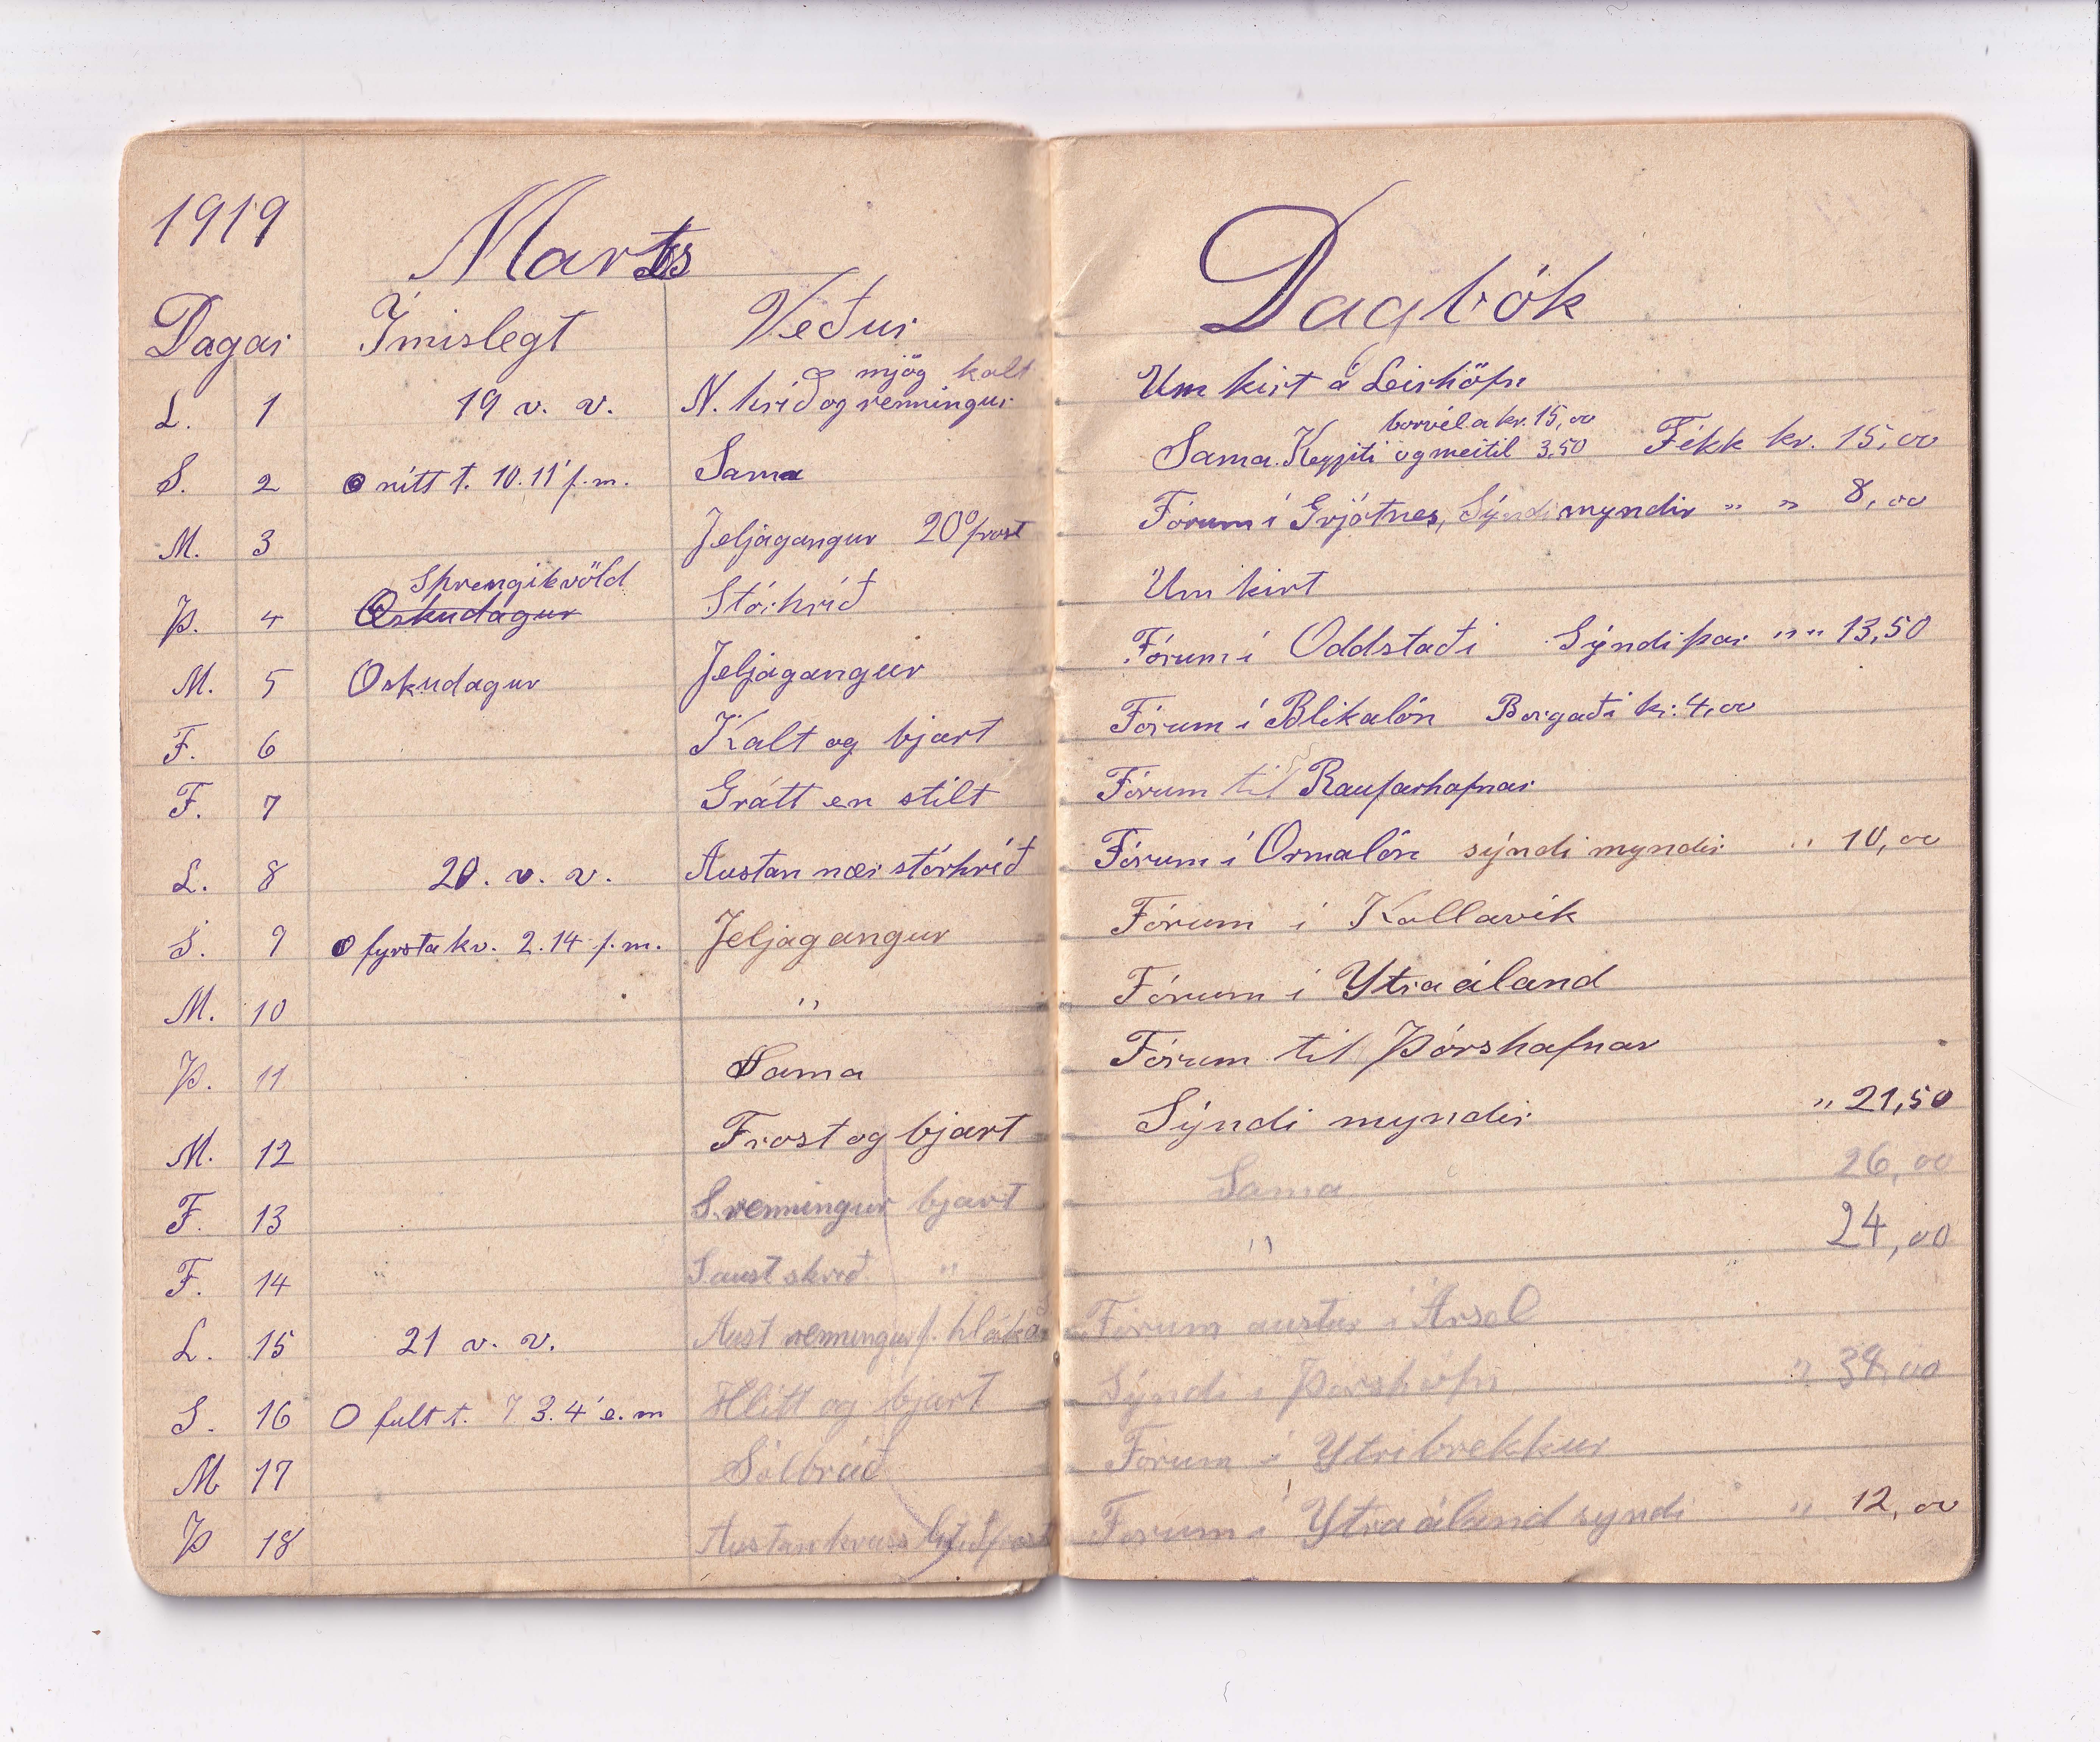 1919 Marts
Dagar Ýmislegt Veður
mjög kalt
L. 1 19 v. v. N. hríð og renningur
S. 2 nítt t. 10.11' f.m. Sama
M. 3 Jeljagangur 20° frost
Sprengikvöld
Þ. 4 Öskudagur Stórhríð
M. 5 Öskudagur Jeljagangur
F. 6 Kalt og bjart
F. 7 Grátt en stilt
L. 8 20. v. v. Austan nær stórhríð
S. 9 fyrsta kv. 2.14 f.m. Jeljagangur
M. 10 "
Þ. 11 Sama
M. 12 Frost og bjart
F. 13 S. renningur bjart
F. 14 "
L. 15 21 v. v. Aust renningur f. hláka
S. 16 O fult t. 3.4' e.m Hlítt og bjart
M 17 Sólbráð
Þ 18 Austan
Dagbók
Um kirt á Leirhöfn
borvél a kr. 15,00
Sama. Keypti og meitil 3,50 Fékk kr. 15,00
Fórum í Grjótnes, Sýndi myndir " " 8,00
Um kirt
Fórum í Oddstaði Sýndi þar " " 13,50
Fórum í Blikalón Borgaði kr. 4,00
Fórum til Raufarhafnar
Fórum í Ormalón sýndi myndir " 10,00
Fórum í Kollavík
Fórum í Ytraáland
Fórum til Þórshafnar
Sýndi myndir " 21,50
Sama 26,00
" 24,00
Fórum austur í Arsel
Sýndi í Þórshöfn "
Fórum í Ytribrekkur
Fórum í Ytraáland syndi " 12,00